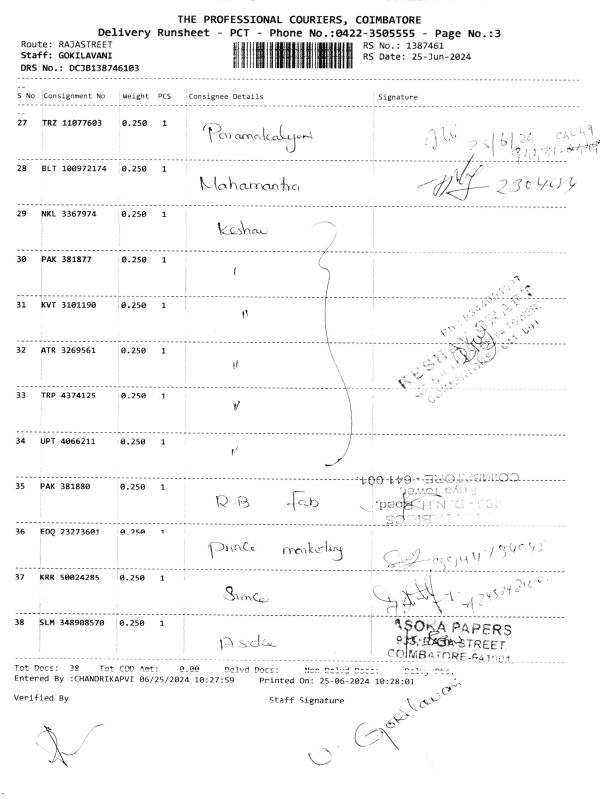 THE PROFESSIONAL COURIERS, COIMBATORE
Delivery Runsheet - PCT - Phone No.:0422-3505555 - Page No.:3
Route: RAJASTREET RS No.: 1387461
Staff: GOKILAVANI RS Date: 25-Jun-2024
DRS No.: DCJB138746103
S No Consignment No Weight PCS Consignee Details Signature
27 TRZ 11077603 0.250 1 Paramakalyani 25/6/24
28 BLT 100972174 0.250 1 Mahamantra
29 NKL 3367974 0.250 1 Keshav
30 PAK 381877 0.250 1 "
31 KVT 3101190 0.250 1 "
32 ATR 3269561 0.250 1 "
33 TRP 4374125 0.250 1 "
34 UPT 4066211 0.250 1 "
KESHAV KRAFT
COIMBATORE 641 001
35 PAK 381880 0.250 1 R.B fab
COIMBATORE - 641 001.
36 EDQ 23273601 0.250 1 Prince marketing
37 KRR 50024285 0.250 1 Simco
38 SLM 348908570 0.250 1
ASOKA PAPERS
RAJA STREET
COIMBATORE-641001
Tot Docs: 38 Tot COD Amt: 0.00 Delvd Docs: Non Delvd Docs:
Entered By :CHANDRIKAPVI 06/25/2024 10:27:59 Printed On: 25-06-2024 10:28:01
Verified By Staff Signature
V. Gokilavani